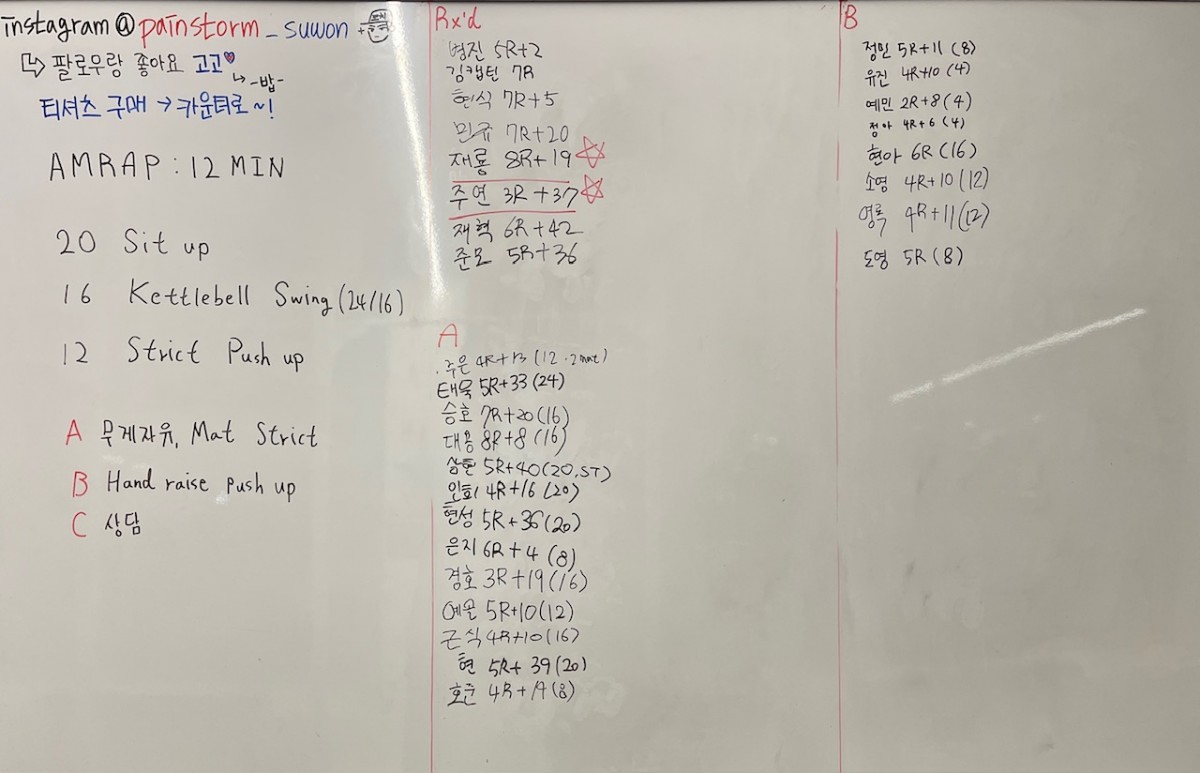 instagram@painstorm_suwon
팔로우랑 좋아요 고고♥
→ -밥-
티셔츠 구매 → 카운터로~!
AMRAP : 12 MIN
20 Sit up
16 Kettlebell Swing (24/16)
12 Strict Push up
A 무게자유, Mat Strict
B Hand raise push up
C 상담
Rx'd
병진 5R+2
김캡틴 7R
현식 7R+5
민규 7R+20
재룡 8R+19 ☆
주연 3R+37 ☆
재혁 6R+42
준모 5R+36
A
주은 4R+13 (12·2mat)
태욱 5R+33 (24)
승호 7R+20 (16)
대용 8R+8 (16)
5R+40 (20, ST)
인회 4R+16 (20)
현성 5R+36 (20)
은지 6R+4 (8)
경호 3R+19 (16)
예은 5R+10 (12)
근식 4R+10 (16)
현 5R+39 (20)
호준 4R+ (8)
B
정민 5R+11 (8)
유진 4R+10 (4)
예민 2R+8 (4)
정아 4R+6 (4)
현아 6R (16)
소영 4R+10 (12)
영록 4R+11 (12)
도영 5R (8)